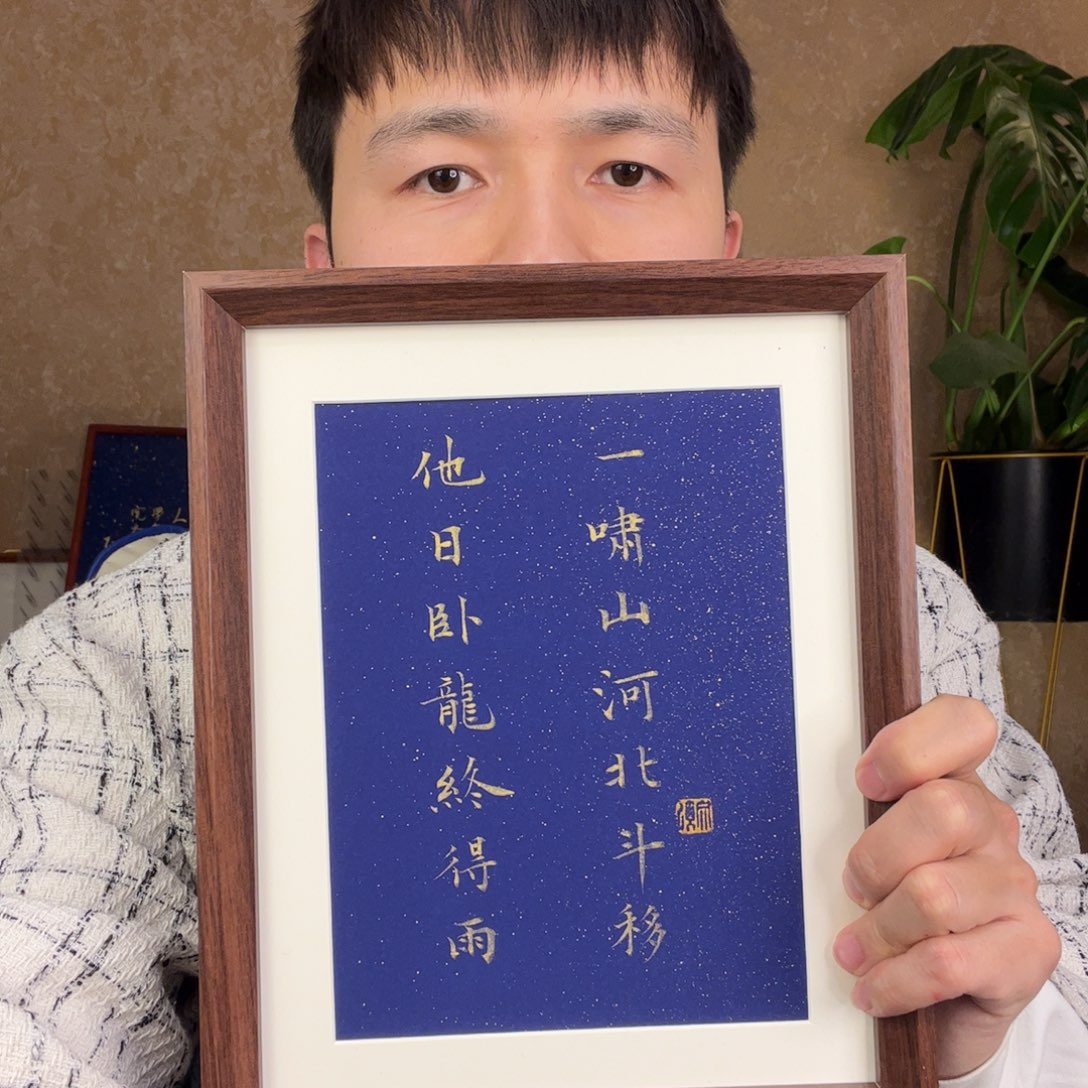 他日卧龍終得雨
一嘯山河北斗移